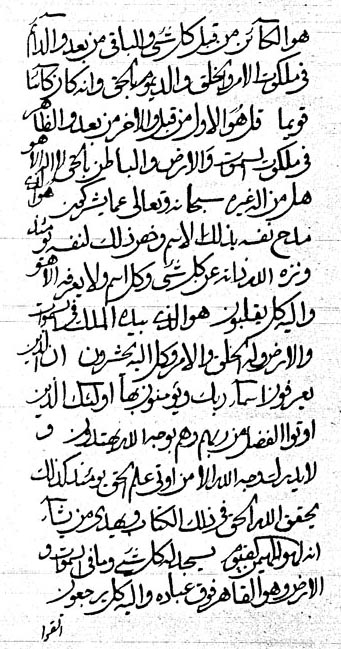 هو الكائن من قبل كل شئ والباقى من بعد والدائم
فى ملكوت الامر والخلق والديوم بالحق وانه كان كائنا
قويما قل هو الاول من قبل والاخر من بعد والظاهر
فى ملكوت السموت والارض والباطن بالحق لا اله الا هو
هل من اله غيره سبحانه وتعالى عما يشركون هو الذى
مدح نفسه بذلك الاسم وخص ذلك لنفسه يومئذ
ونزه الله ذاته عن كل شئ وكل اسم ولا يعرفه الا هو
واليه كل يقلبون هو الذى بيده الملك فى السموات
والارض وله الخلق والامر وكل اليه يحشرون ان الذين
يعرفون اسماء ربك ويومنون بها اولئك الذين
اوتوا الفضل من ربهم وهم بوجه الله يهتدون و
لا يدرك وجه الله الا من اوتى علم الحق يومئذ كذلك
يحقق الله الحق فى ذلك الكتاب ويهدى من يشاء
انه لهو المهيمن القيوم يسجد له كل شئ وما فى السموات و
الارض وهو القاهر فوق عباده واليه كل يرجعون